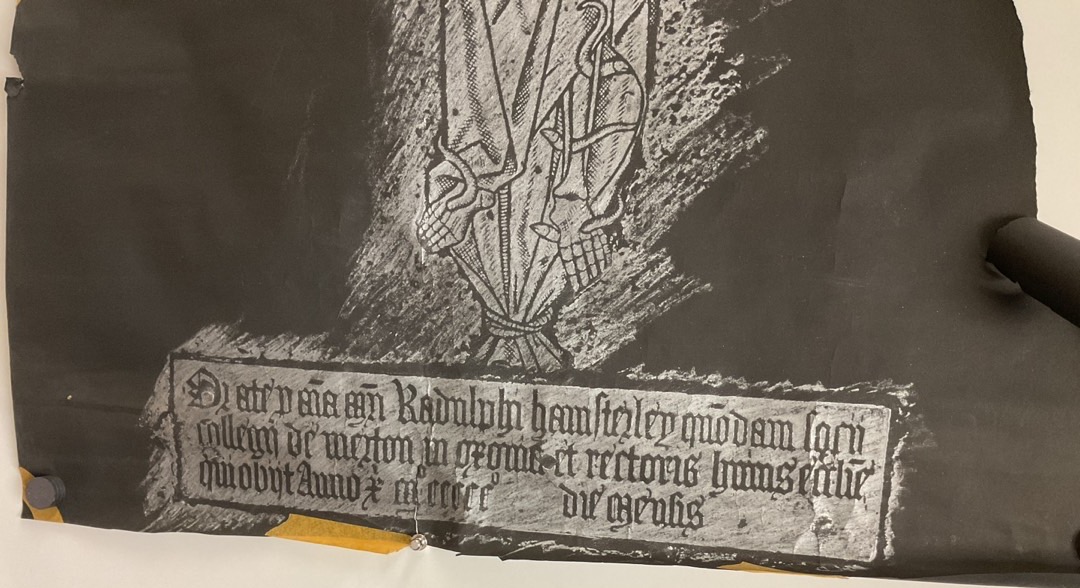 Orate p aīa mrī Radulphi hamsterley quōdam socii
collegij de merton in oxoniā et rectoris huius ecclīe
qui obijt Anno x̄ m° ccccc° die Mensis